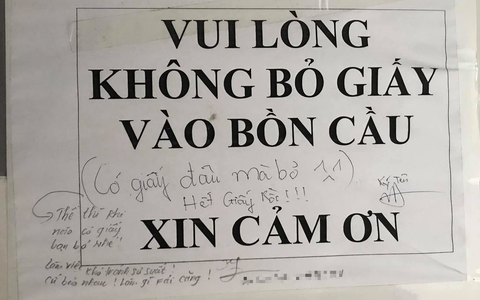 VUI LÒNG
KHÔNG BỎ GIẤY
VÀO BỒN CẦU
(Có giấy đâu mà bỏ ^^)
Hết Giấy Rồi!!!
Ký Tên
Thế thì khi
nào có giấy
bạn bỏ nhé!
XIN CẢM ƠN
làm việc khó tránh sơ suất!
Cứ bảo nhau! Làm gì căng!